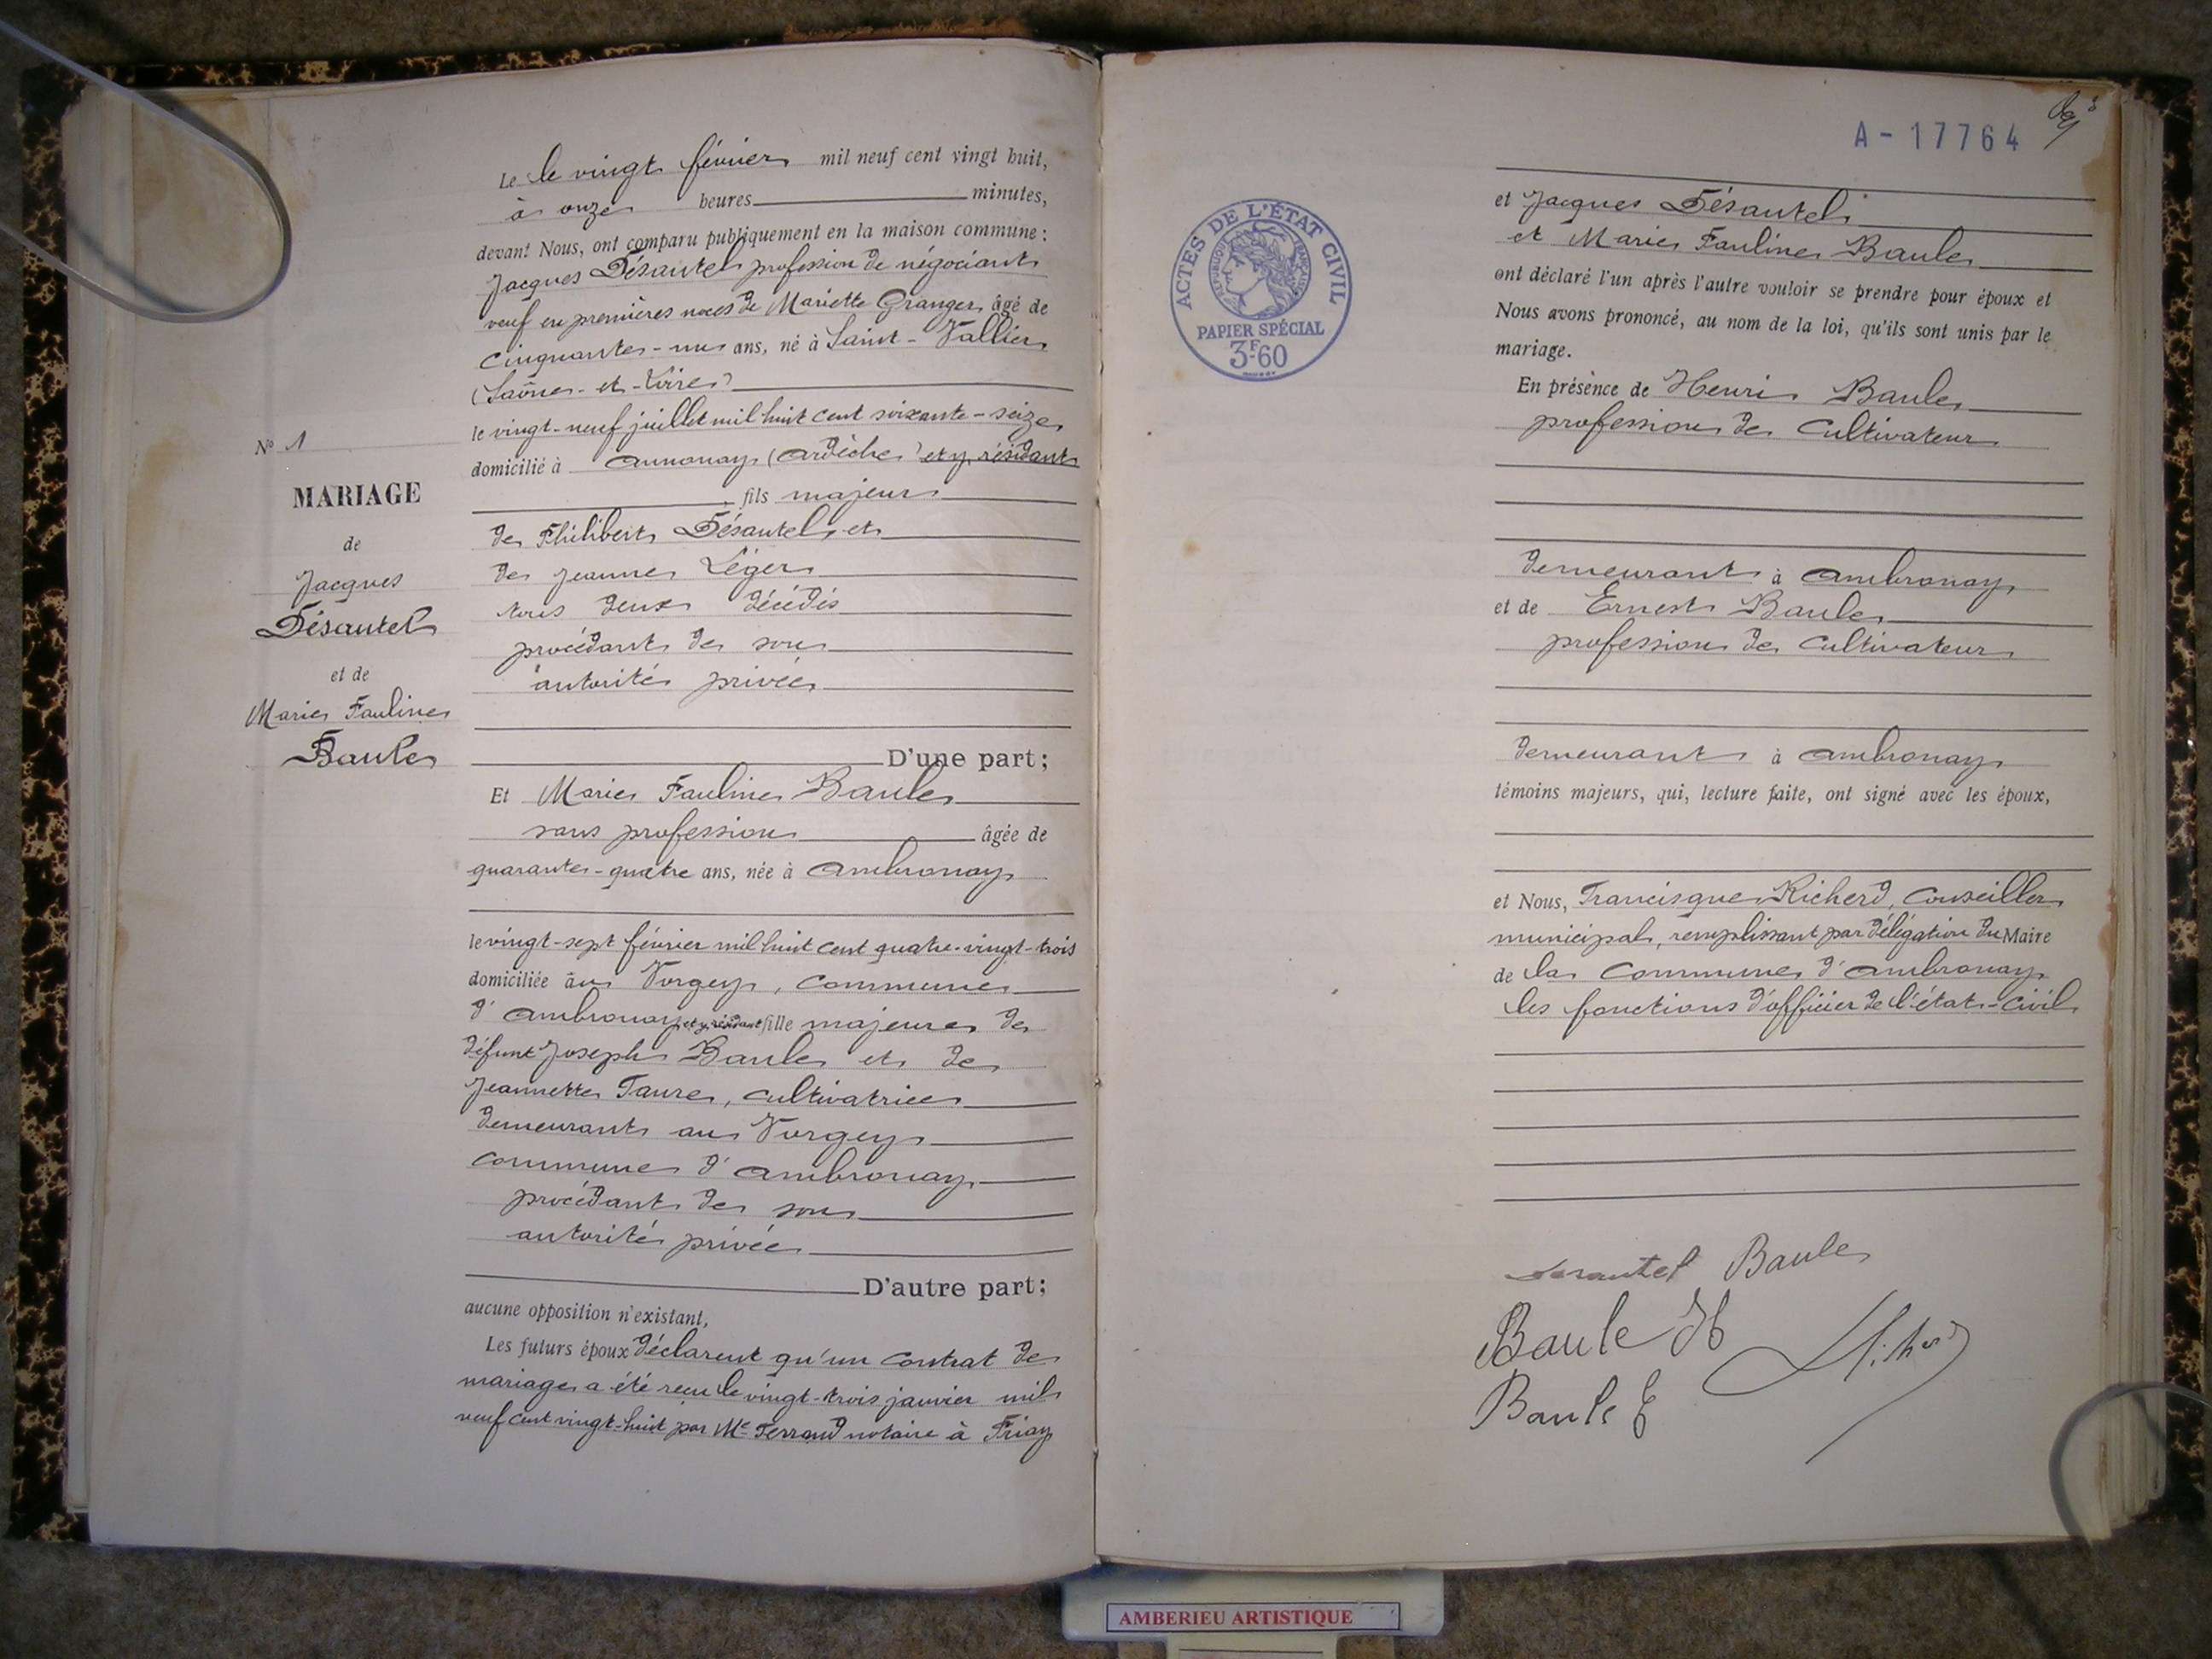 Le le vingt février mil neuf cent vingt huit,
à onze heures minutes,
devant Nous, ont comparu publiquement en la maison commune :
Jacques Désautel profession de négociant
veuf en premières noces de Mariette Granger, âgé de
cinquante-un ans, né à Saint-Vallier
(Saône-et-Loire)
le vingt-neuf juillet mil huit cent soixante-seize
domicilié à Annonay (Ardèche) et y résidant
fils majeur
de Philibert Désautel et
de Jeanne Léger
tous deux décédés
procédant de son
autorité privée
D'une part ;
Et Marie Pauline Baule
sans profession âgée de
quarante-quatre ans, née à Ambronay
le vingt-sept février mil huit cent quatre-vingt-trois
domiciliée au Vorgey, commune
d'Ambronay et y résidant fille majeure de
défunt Joseph Baule et de
Jeannette Faure, cultivatrice
demeurant au Vorgey
commune d'Ambronay
procédant de son
autorité privée
D'autre part ;
aucune opposition n'existant,
Les futurs époux déclarent qu'un contrat de
mariage a été reçu le vingt-trois janvier mil
neuf cent vingt-huit par Me Ferrand notaire à Priay
N° 1
MARIAGE
de
Jacques
Désautel
et de
Marie Pauline
Baule
A - 17764
ACTES DE L'ÉTAT CIVIL
RÉPUBLIQUE FRANÇAISE
PAPIER SPÉCIAL
3F60
et Jacques Désautel
et Marie Pauline Baule
ont déclaré l'un après l'autre vouloir se prendre pour époux et
Nous avons prononcé, au nom de la loi, qu'ils sont unis par le
mariage.
En présence de Henri Baule
profession de cultivateur
demeurant à Ambronay
et de Ernest Baule
profession de cultivateur
demeurant à Ambronay
témoins majeurs, qui, lecture faite, ont signé avec les époux,
et Nous, Francisque Richerd, conseiller
municipal, remplissant par délégation du Maire
de la commune d'Ambronay
les fonctions d'officier de l'état-civil
Desautel Baule
Baule H
Baule E
AMBERIEU ARTISTIQUE